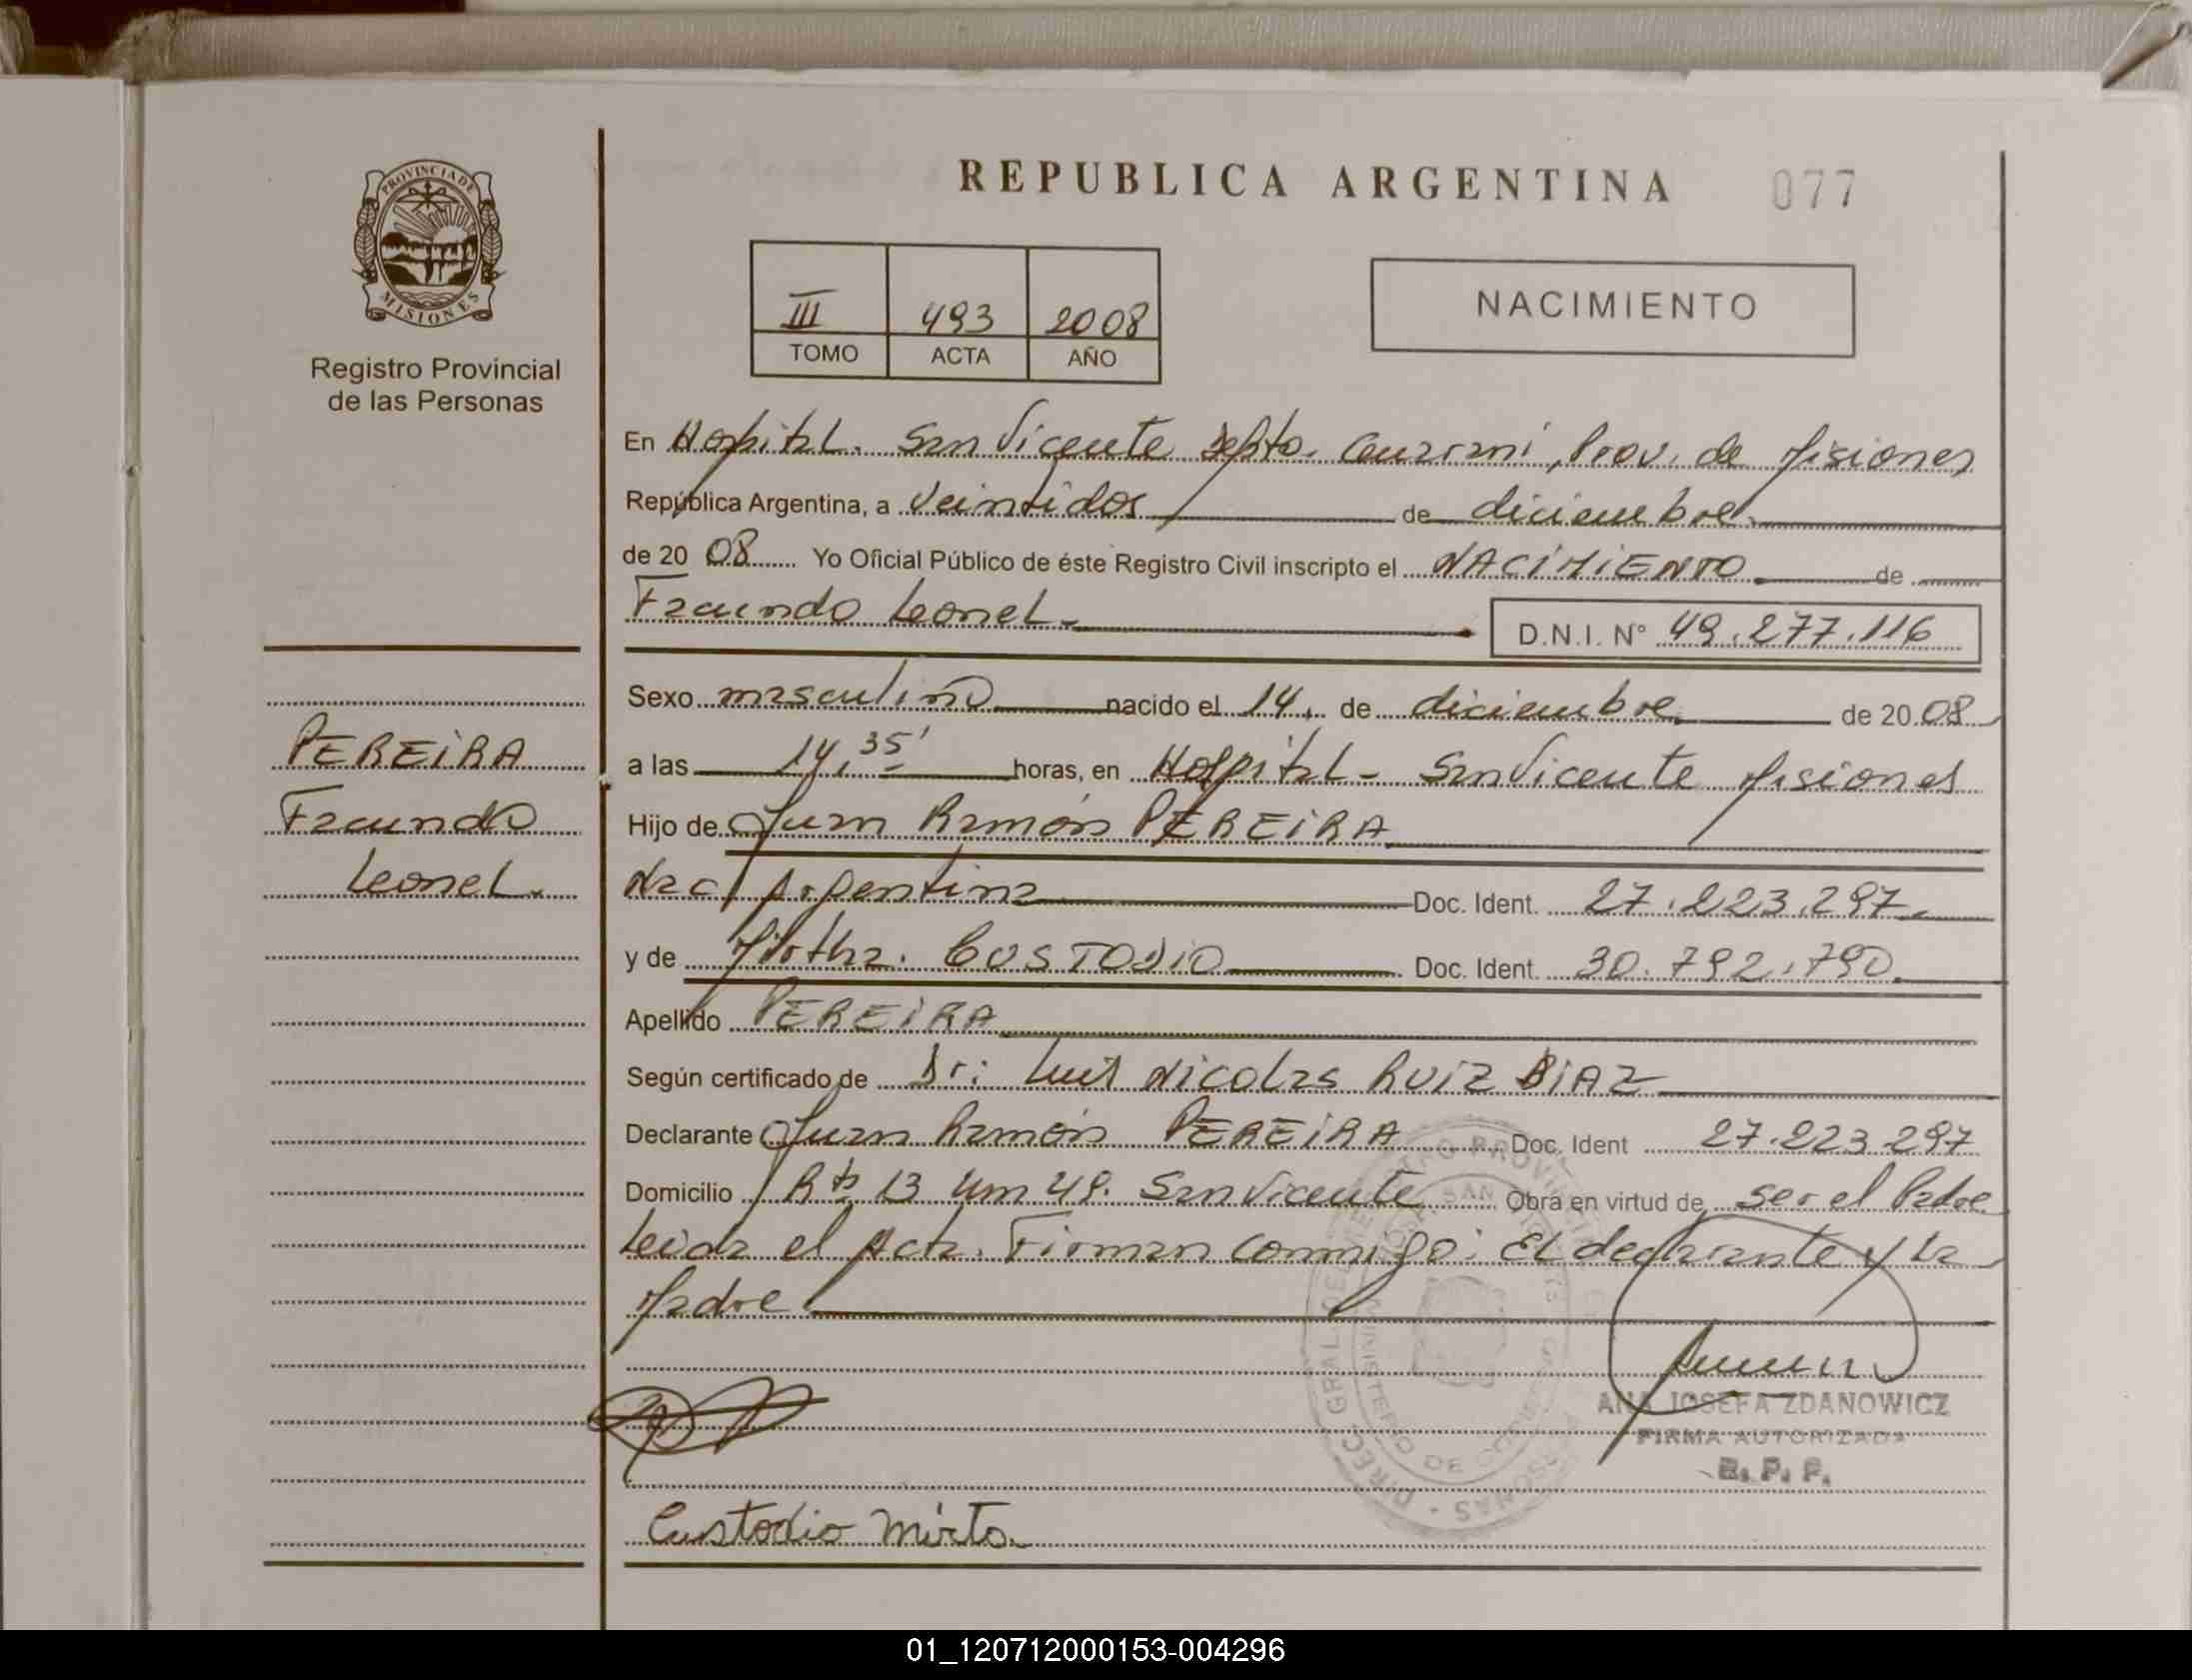 REPUBLICA ARGENTINA 077
PROVINCIA DE
MISIONES
Registro Provincial
de las Personas
III 493 2008
TOMO ACTA AÑO
NACIMIENTO
En Hospital. San Vicente Depto. Guaraní, Prov. de Misiones
República Argentina, a veintidos de diciembre
de 20 08 Yo Oficial Público de éste Registro Civil inscripto el NACIMIENTO de
Facundo Leonel
D.N.I. Nº 49.277.116
Sexo masculino nacido el 14 de diciembre de 20 08
a las 14,35' horas, en Hospital - San Vicente Misiones
Hijo de Juan Ramón PEREIRA
Nac Argentina Doc. Ident. 27.223.297
y de Mirtha. CUSTODIO Doc. Ident. 30.792.790
Apellido PEREIRA
Según certificado de Dr: Luis Nicolas RUIZ DIAZ
Declarante Juan Ramón PEREIRA Doc. Ident 27.223.297
Domicilio Rta 13 Km 48. San Vicente Obra en virtud de ser el Padre
Leida el Acta. Firman conmigo: El declarante y la
Madre
PEREIRA
Facundo
Leonel
ANA JOSEFA ZDANOWICZ
FIRMA AUTORIZADA
R. P. P.
Custodio Mirta
01_120712000153-004296